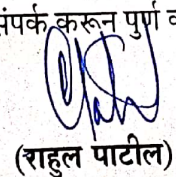 संपर्क करून पुर्ण व
(राहुल पाटील)